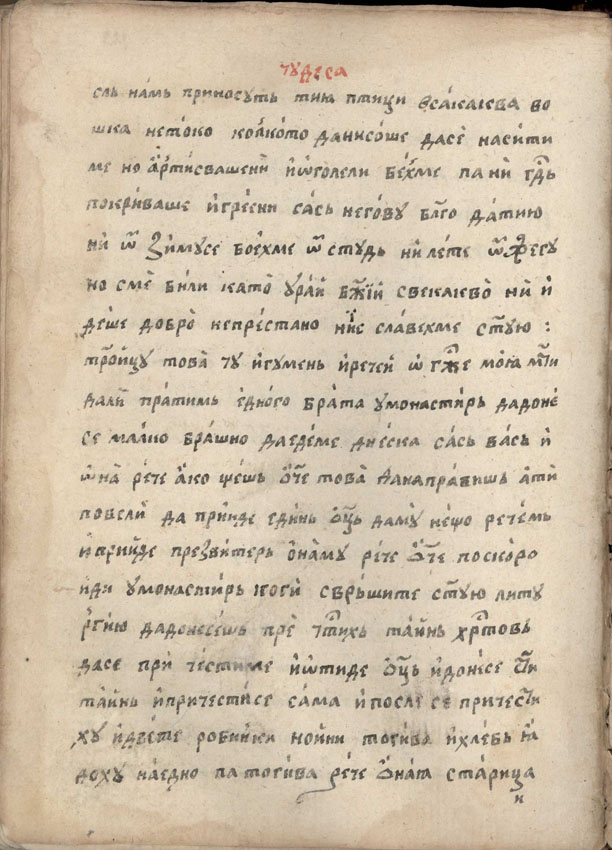 чꙋдеса
съ намь приносуть тию птици всакаква во
шка нетоко колкото данисоше дасе насити
ме но и҆ѡголели бехме па ни гдⷭь
покриваше и҆греѧни сась неговꙋ блг҃о датию
ни ѿ зимꙋсе боехме ѿ стꙋдь ни лете ѿ жегꙋ
но сме били като ꙋрай бж҃їй свекакво ни и҆
деше добро непрестано ние славехме ст҃ꙋю :
трⷪ҇ицꙋ това тꙋ и҆гꙋмень и҆рече ѡ гж҃е моѧ
дали пратимь едного брата ꙋмонастирь дадоне
се малко брашно даедеме днеска сась вась и҆
ѡна рече ако щешь ѿче това данаправишь ати
повели да прииде единь ѿць дамꙋ нещо речемь
и҆прииде презвитерь ѻнамꙋ рече ѿче поскоро
иди ꙋмонастирь коги свршите ст҃ꙋю литꙋ
ргию дадонесешь пре чтⷭ҇ихь таинь хрⷭ҇товь
дасе при честиме и҆ѿиде ѿць идонесе
таинь и҆причестисе сама и҆после се причести
хꙋ и҆двете робинки нойни тогива и҆хлебь ꙗ
дохꙋ наедно па тогива рече ѻнаꙗ старица
и